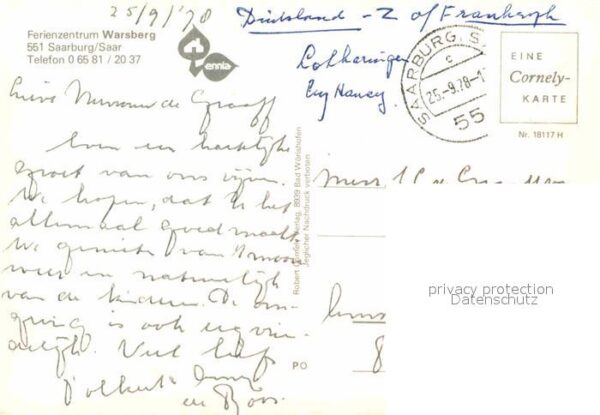 25/9/'78
Duitsland - Z of Frankrijk
Ferienzentrum Warsberg
551 Saarburg/Saar
Telefon 0 65 81 / 20 37
ennia
Lotharingen
bij Nancy
SAARBURG, S
c
25.-9.78-1
55
EINE
Cornely-
KARTE
Nr. 18117 H
Lieve Mevrouw de Graaff
Even een hartelijke
groet van ons
We hopen, dat U het
allemaal goed maakt
We genieten van 't mooie
weer en natuurlijk
van de kinderen. De om-
geving is ook erg vrien-
delijk. Veel liefs
en
Robert Cornely Verlag, 8939 Bad Wörishofen
Jeglicher Nachdruck verboten
privacy protection
Datenschutz
8
PO